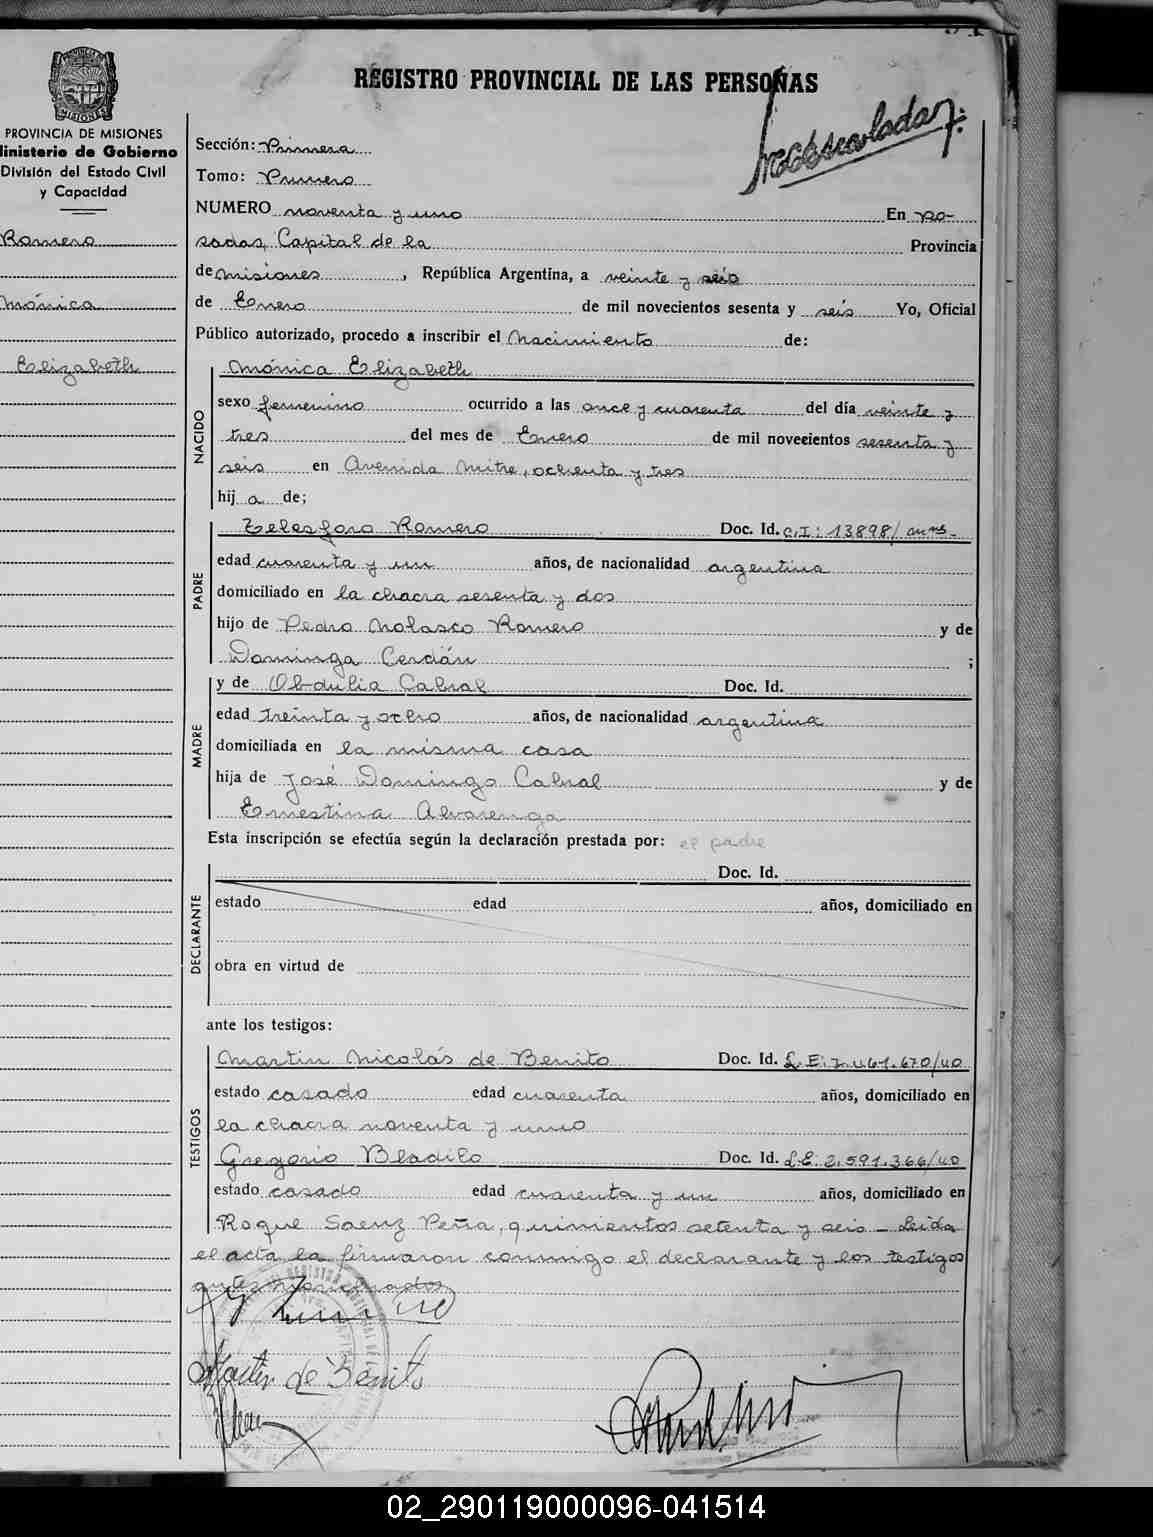 REGISTRO PROVINCIAL DE LAS PERSONAS
PROVINCIA DE MISIONES
Ministerio de Gobierno
División del Estado Civil
y Capacidad
Romero
Mónica
Elizabeth
Sección: Primera
Tomo: Primero
NUMERO noventa y uno En Po-
sadas, Capital de la Provincia
de Misiones, República Argentina, a veinte y seis
de Enero de mil novecientos sesenta y seis Yo, Oficial
Público autorizado, procedo a inscribir el Nacimiento de:
NACIDO
Mónica Elizabeth
sexo femenino ocurrido a las once y cuarenta del día veinte y
tres del mes de Enero de mil novecientos sesenta y
seis en Avenida Mitre, ochenta y tres
hij a de;
PADRE
Telesforo Romero Doc. Id. C.I: 13898/ mns.
edad cuarenta y un años, de nacionalidad argentina
domiciliado en la chacra sesenta y dos
hijo de Pedro Nolasco Romero y de
Dominga Cerdán ;
MADRE
y de Obdulia Cabral Doc. Id.
edad treinta y ocho años, de nacionalidad argentina
domiciliada en la misma casa
hija de José Domingo Cabral y de
Ernestina Alvarenga
Esta inscripción se efectúa según la declaración prestada por: el padre
DECLARANTE
Doc. Id.
estado edad años, domiciliado en
obra en virtud de
ante los testigos:
TESTIGOS
Martin Nicolás de Benito Doc. Id. L.E: 7.461.670/40
estado casado edad cuarenta años, domiciliado en
la chacra noventa y uno
Gregorio Bladilo Doc. Id. L.E: 2.591.366/40
estado casado edad cuarenta y un años, domiciliado en
Roque Saenz Peña, quinientos setenta y seis – Leída
el acta la firmaron conmigo el declarante y los testigos
antes mencionados
Martin de Benito
02_290119000096-041514